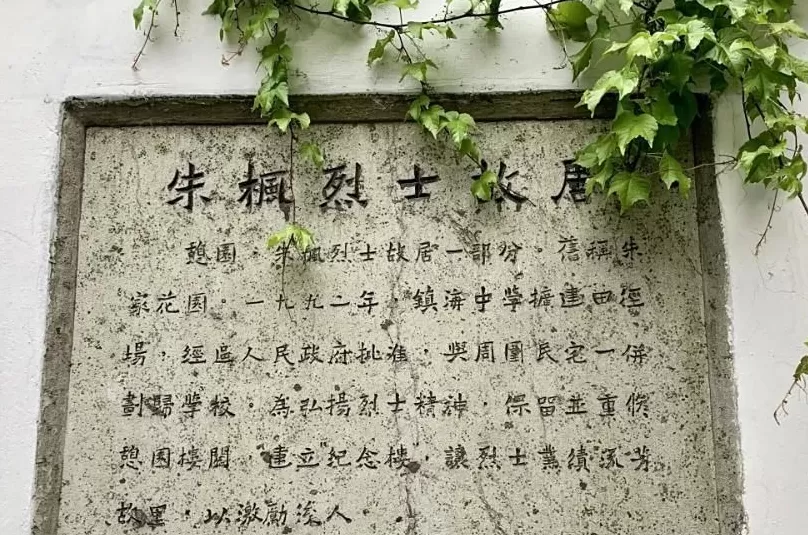 朱楓烈士故居
憩園，朱楓烈士故居一部分，舊稱朱
家花園。一九九二年，鎮海中學擴建田徑
場，經區人民政府批准，與周圍民宅一併
劃歸學校。為弘揚烈士精神，保留並重修
憩園樓閣，建立紀念樓，讓烈士業績流芳
故里，以激勵後人。